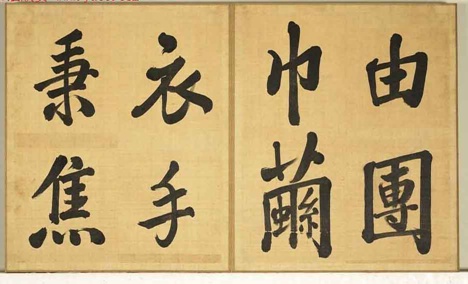 由團
巾繭
衣手
秉焦